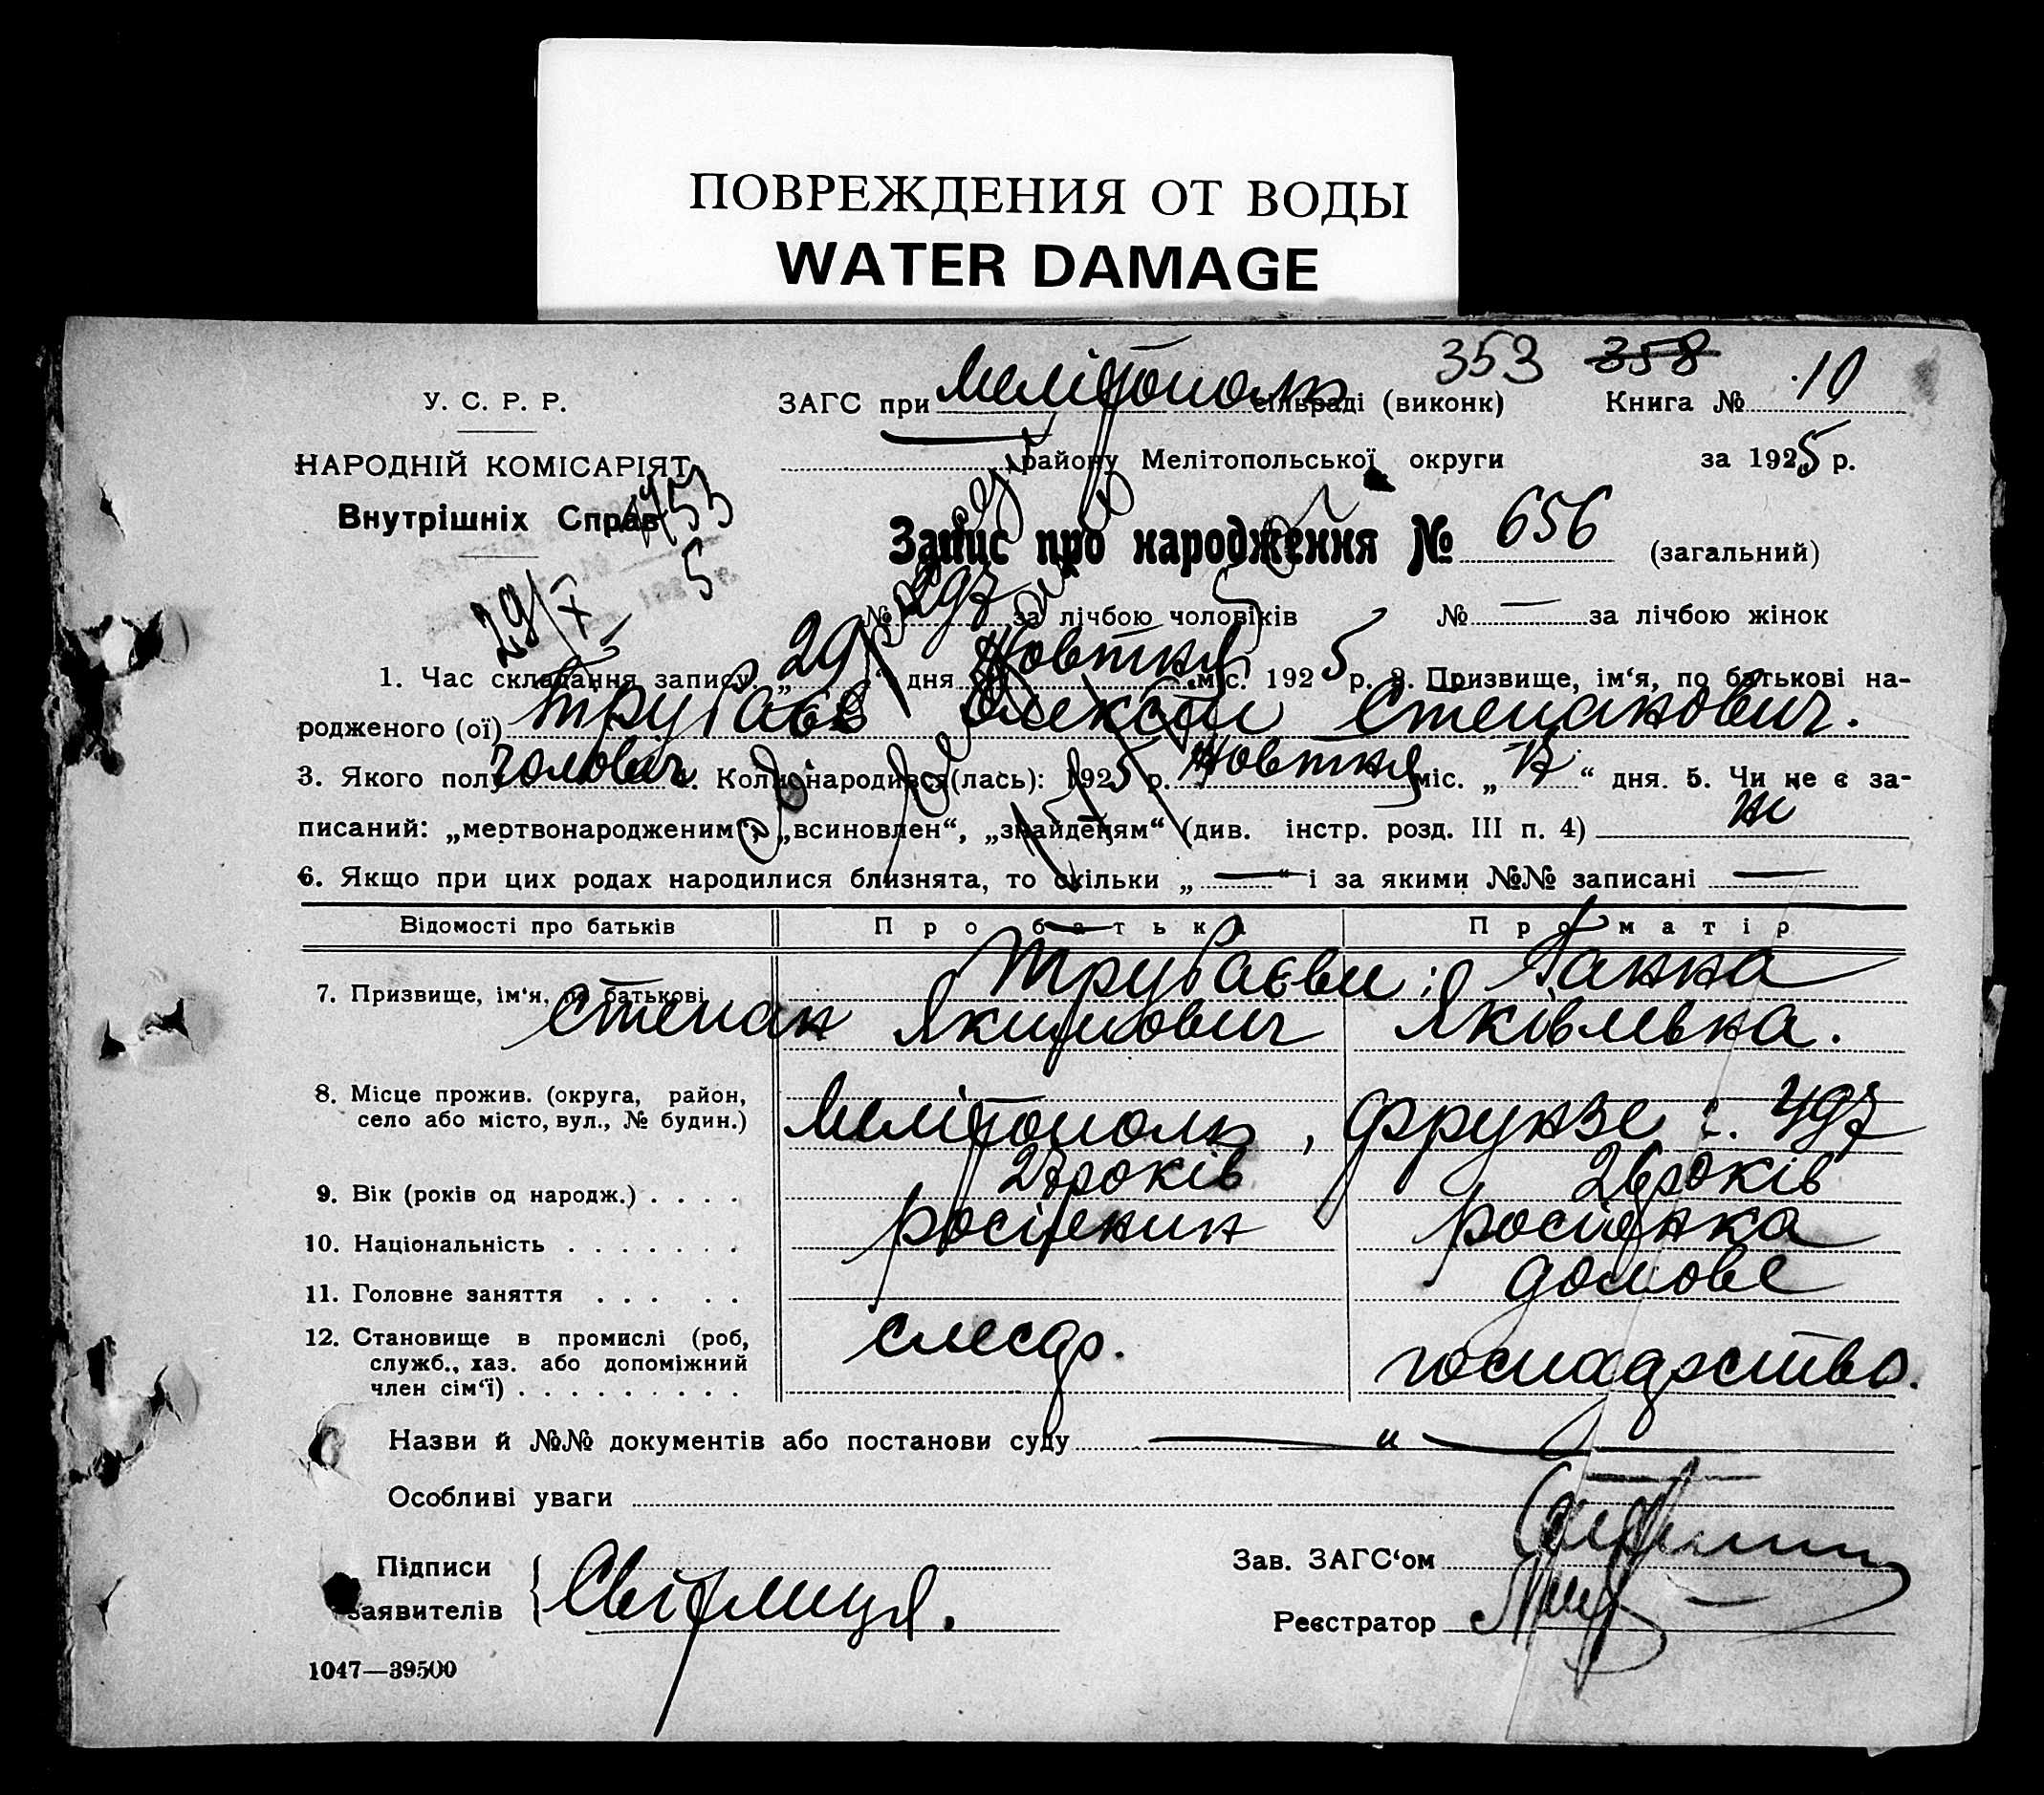 ПОВРЕЖДЕНИЯ ОТ ВОДЫ
WATER DAMAGE
353 358
У. С. Р. Р. ЗАГС при Мелітополь сільраді (виконк) Книга № 10
НАРОДНІЙ КОМІСАРІЯТ району Мелітопольської округи за 1925 р.
Внутрішніх Справ
Запис про народження № 656 (загальний)
29/X 5
№ 297 за лічбою чоловіків № — за лічбою жінок
1. Час складання запису „29“ дня Жовтня міс. 1925 р. 2. Призвище, ім‘я, по батькові на-
родженого (ої) Трубаєв Олексій Степанович.
3. Якого полу чоловіч. 4. Коли народився(лась): 1925 р. Жовтня міс. „ “ дня. 5. Чи не є за-
писаний: „мертвонародженим“, „всиновлен“, „знайденям“ (див. інстр. розд. III п. 4) ні
6. Якщо при цих родах народилися близнята, то скільки „—“ і за якими №№ записані —
Відомості про батьків Про батька Про матір
7. Призвище, ім‘я, по батькові Трубаєви: Ганна
Степан Якимович Яківлевна.
8. Місце прожив. (округа, район,
село або місто, вул., № будин.) Мелітополь, Фрунзе 497
9. Вік (років од народж.) . . . . 27 років 26 років
10. Національність . . . . . . . росіянин росіянка
11. Головне заняття . . . . . домове
12. Становище в промислі (роб,
служб., хаз. або допоміжний
член сім‘ї) . . . . . . . . . слесар. господарство.
Назви й №№ документів або постанови суду — „ —
Особливі уваги
Підписи
заявителів Світлиця.
Зав. ЗАГС‘ом
Реєстратор
1047—39500